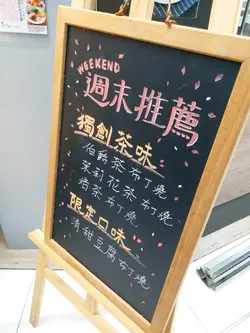 WEEKEND
週末推薦
獨創茶味
伯爵茶布丁燒
茉莉花茶布丁燒
焙茶布丁燒
限定口味
清甜豆腐布丁燒